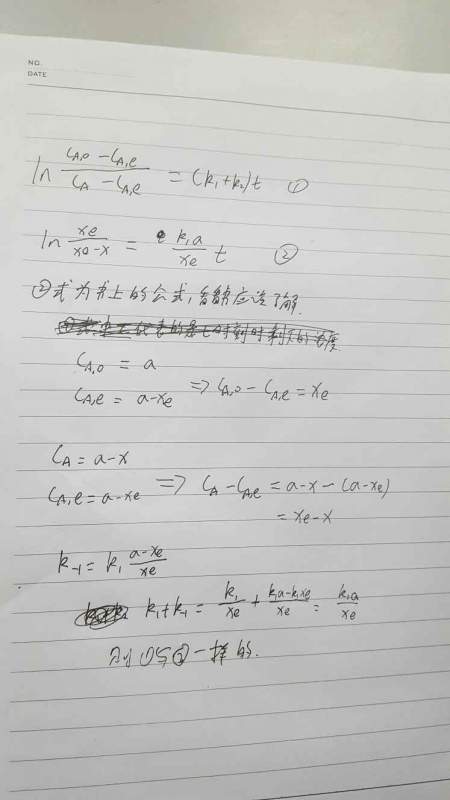 NO.
DATE
ln (C_A,0 − C_A,e)/(C_A − C_A,e) = (k₁+k₂)t ①
ln xe/(xe−x) = k₁a/xe t ②
②式为书上的公式,应该了解.
C_A,0 = a
C_A,e = a−xe ⇒ C_A,0 − C_A,e = xe
C_A = a−x
C_A,e = a−xe ⇒ C_A − C_A,e = a−x−(a−xe)
= xe−x
k₋₁ = k₁ (a−xe)/xe
k₁+k₋₁ = k₁/xe + (k₁a−k₁xe)/xe = k₁a/xe
则①与②一样的.